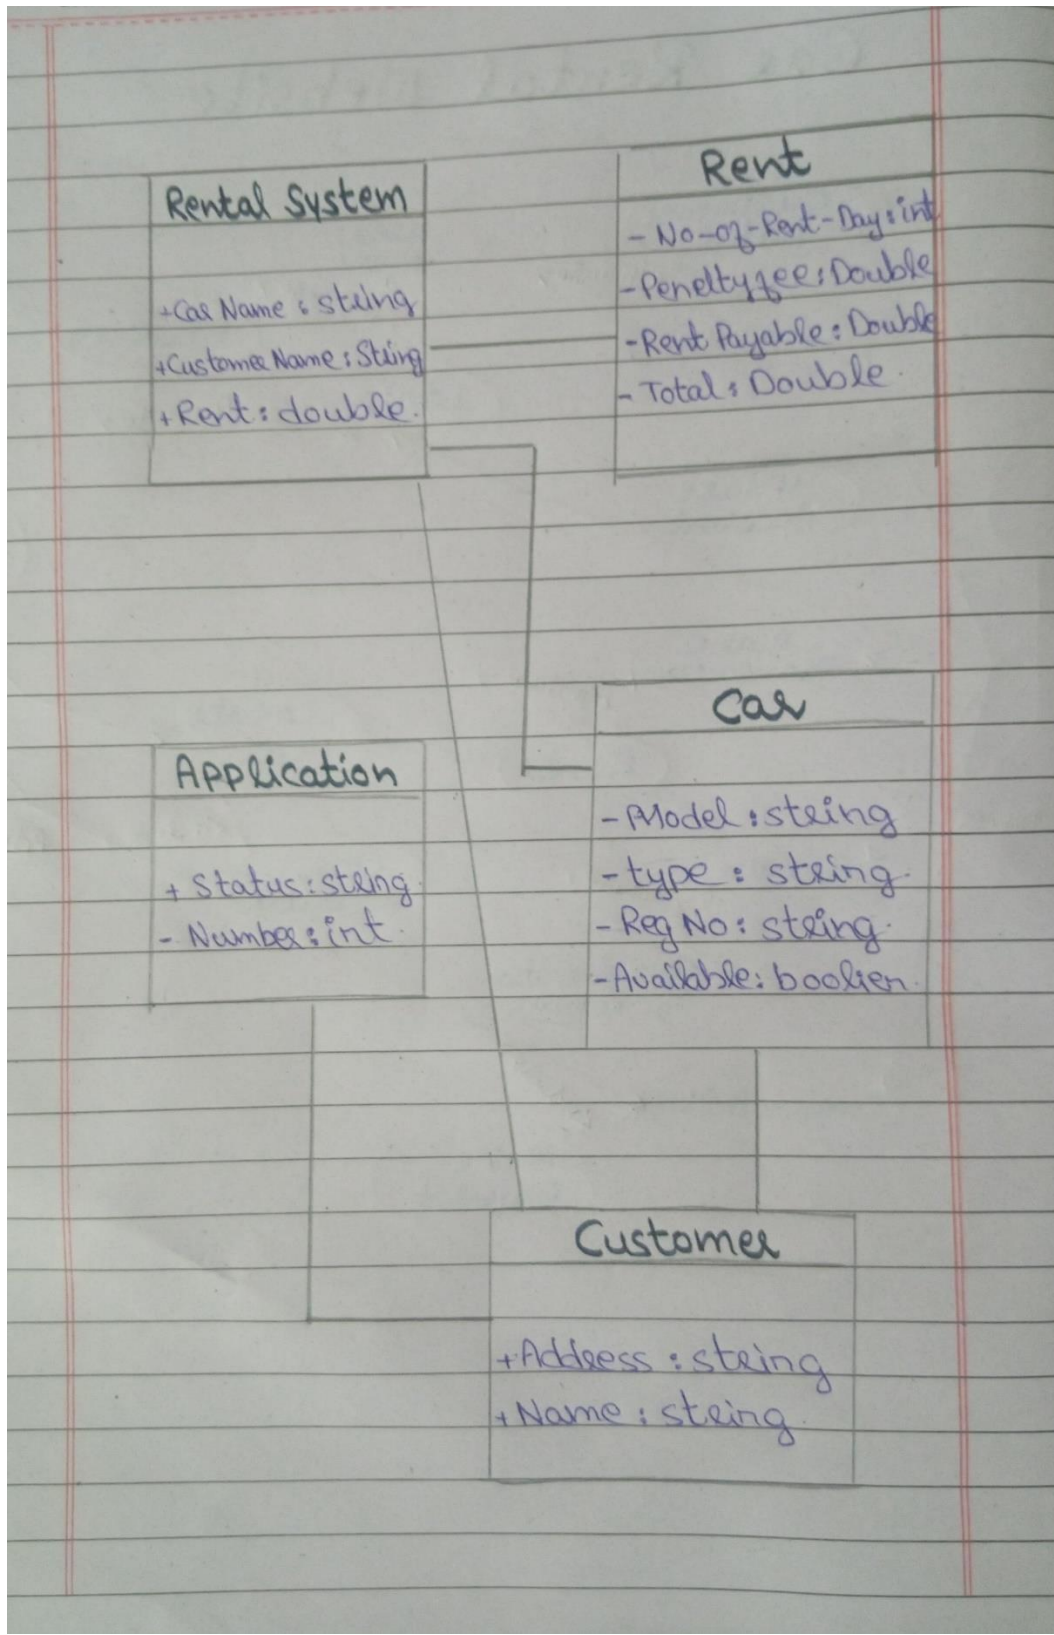 Rental System
+Car Name : string
+Customer Name : String
+Rent : double.
Rent
- No-of-Rent-Day : int
- Peneltyfee : Double
- Rent Payable : Double
- Total : Double.
Application
+ Status : string.
- Number : int.
Car
- Model : string
- type : string.
- Reg No : string.
- Available : boolien.
Customer
+Address : string
+Name : string.